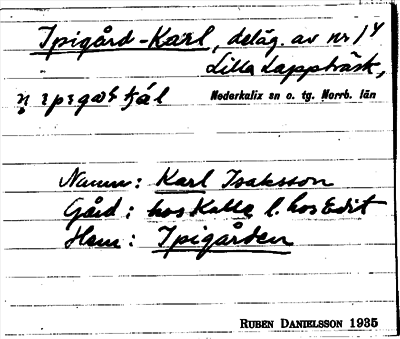 Ipigård-Karl, deläg. av nr 14
Lilla Lappträsk,
Nederkalix sn o. tg. Norrb. län
Namn: Karl Isaksson
Gård: hos Kalla l. hos Edit
Hem: Ipigården
RUBEN DANIELSSON 1935